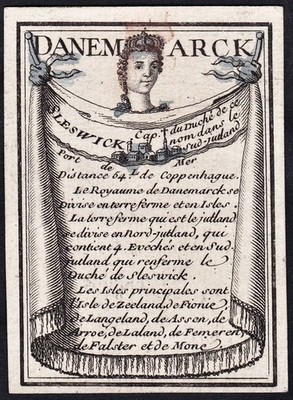 DANEMARCK
SLESWICK Cap. du Duché de ce
nom dans le
Sud-jutland
Port de Mer
Distance 64 l. de Coppenhague.
Le Royaume de Danemarck se
Divise en terre ferme et en Isles.
La terre ferme qui est le jutland
se divise en Nord-jutland, qui
contient 4. Evechés et en Sud-
jutland qui renferme le
Duché de Sleswick.
Les Isles principales sont
l'Isle de Zeeland, de Fionie
de Langeland, de Assen, de
Arroe, de Laland, de Femeren,
de Falster et de Mone